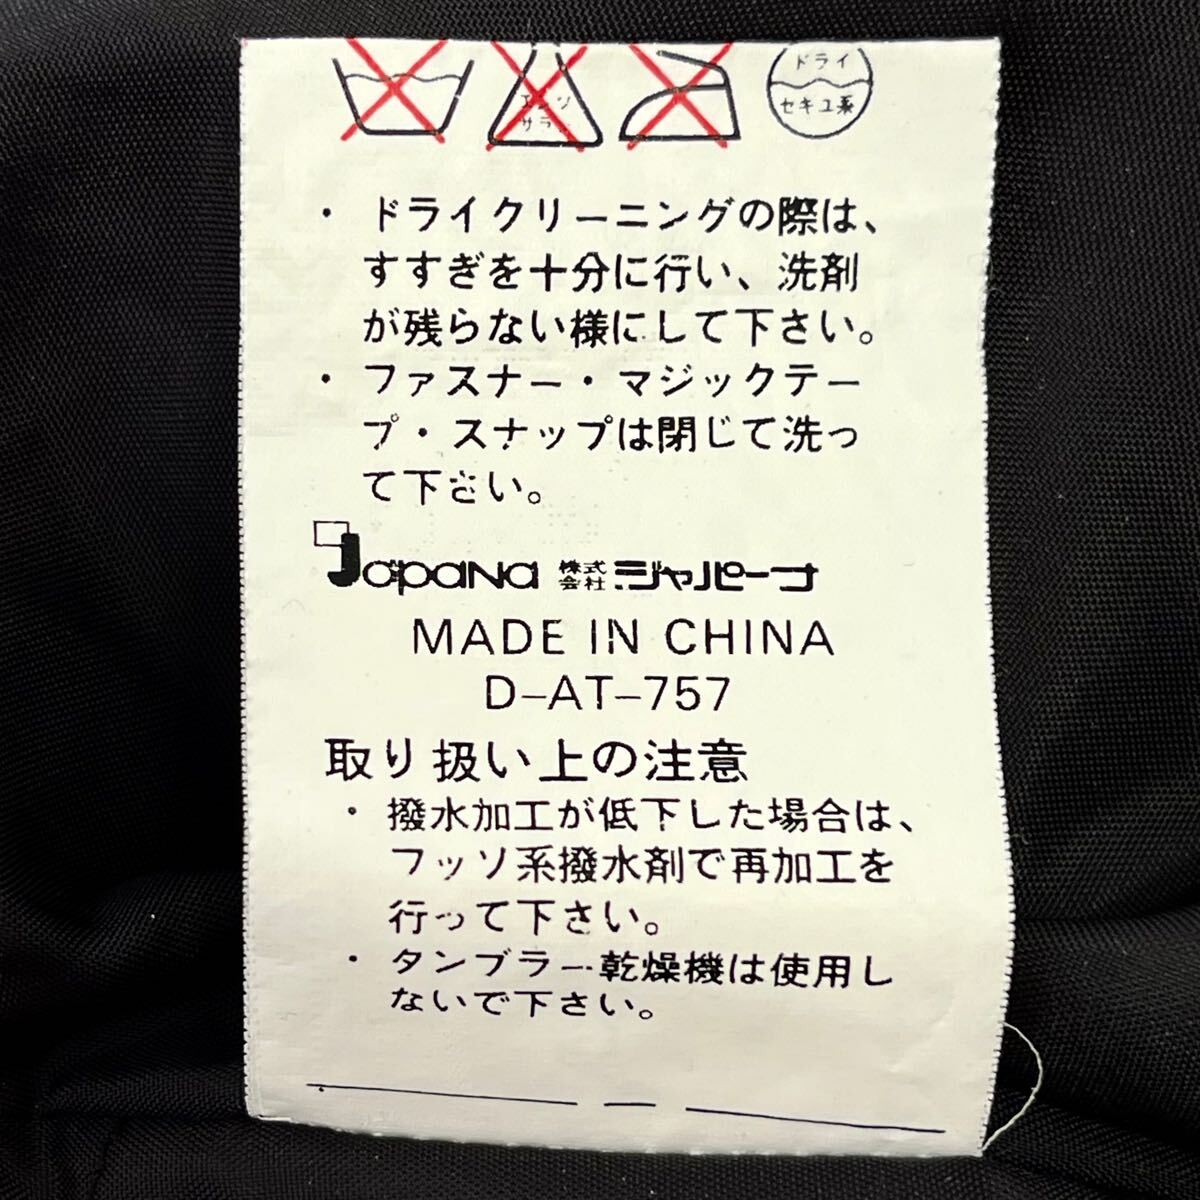 エンソ
サラシ
ドライ
セキユ系
・ドライクリーニングの際は、
すすぎを十分に行い、洗剤
が残らない様にして下さい。
・ファスナー・マジックテー
プ・スナップは閉じて洗っ
て下さい。
Japana 株式会社 ジャパーナ
MADE IN CHINA
D-AT-757
取り扱い上の注意
・撥水加工が低下した場合は、
フッソ系撥水剤で再加工を
行って下さい。
・タンブラー乾燥機は使用し
ないで下さい。